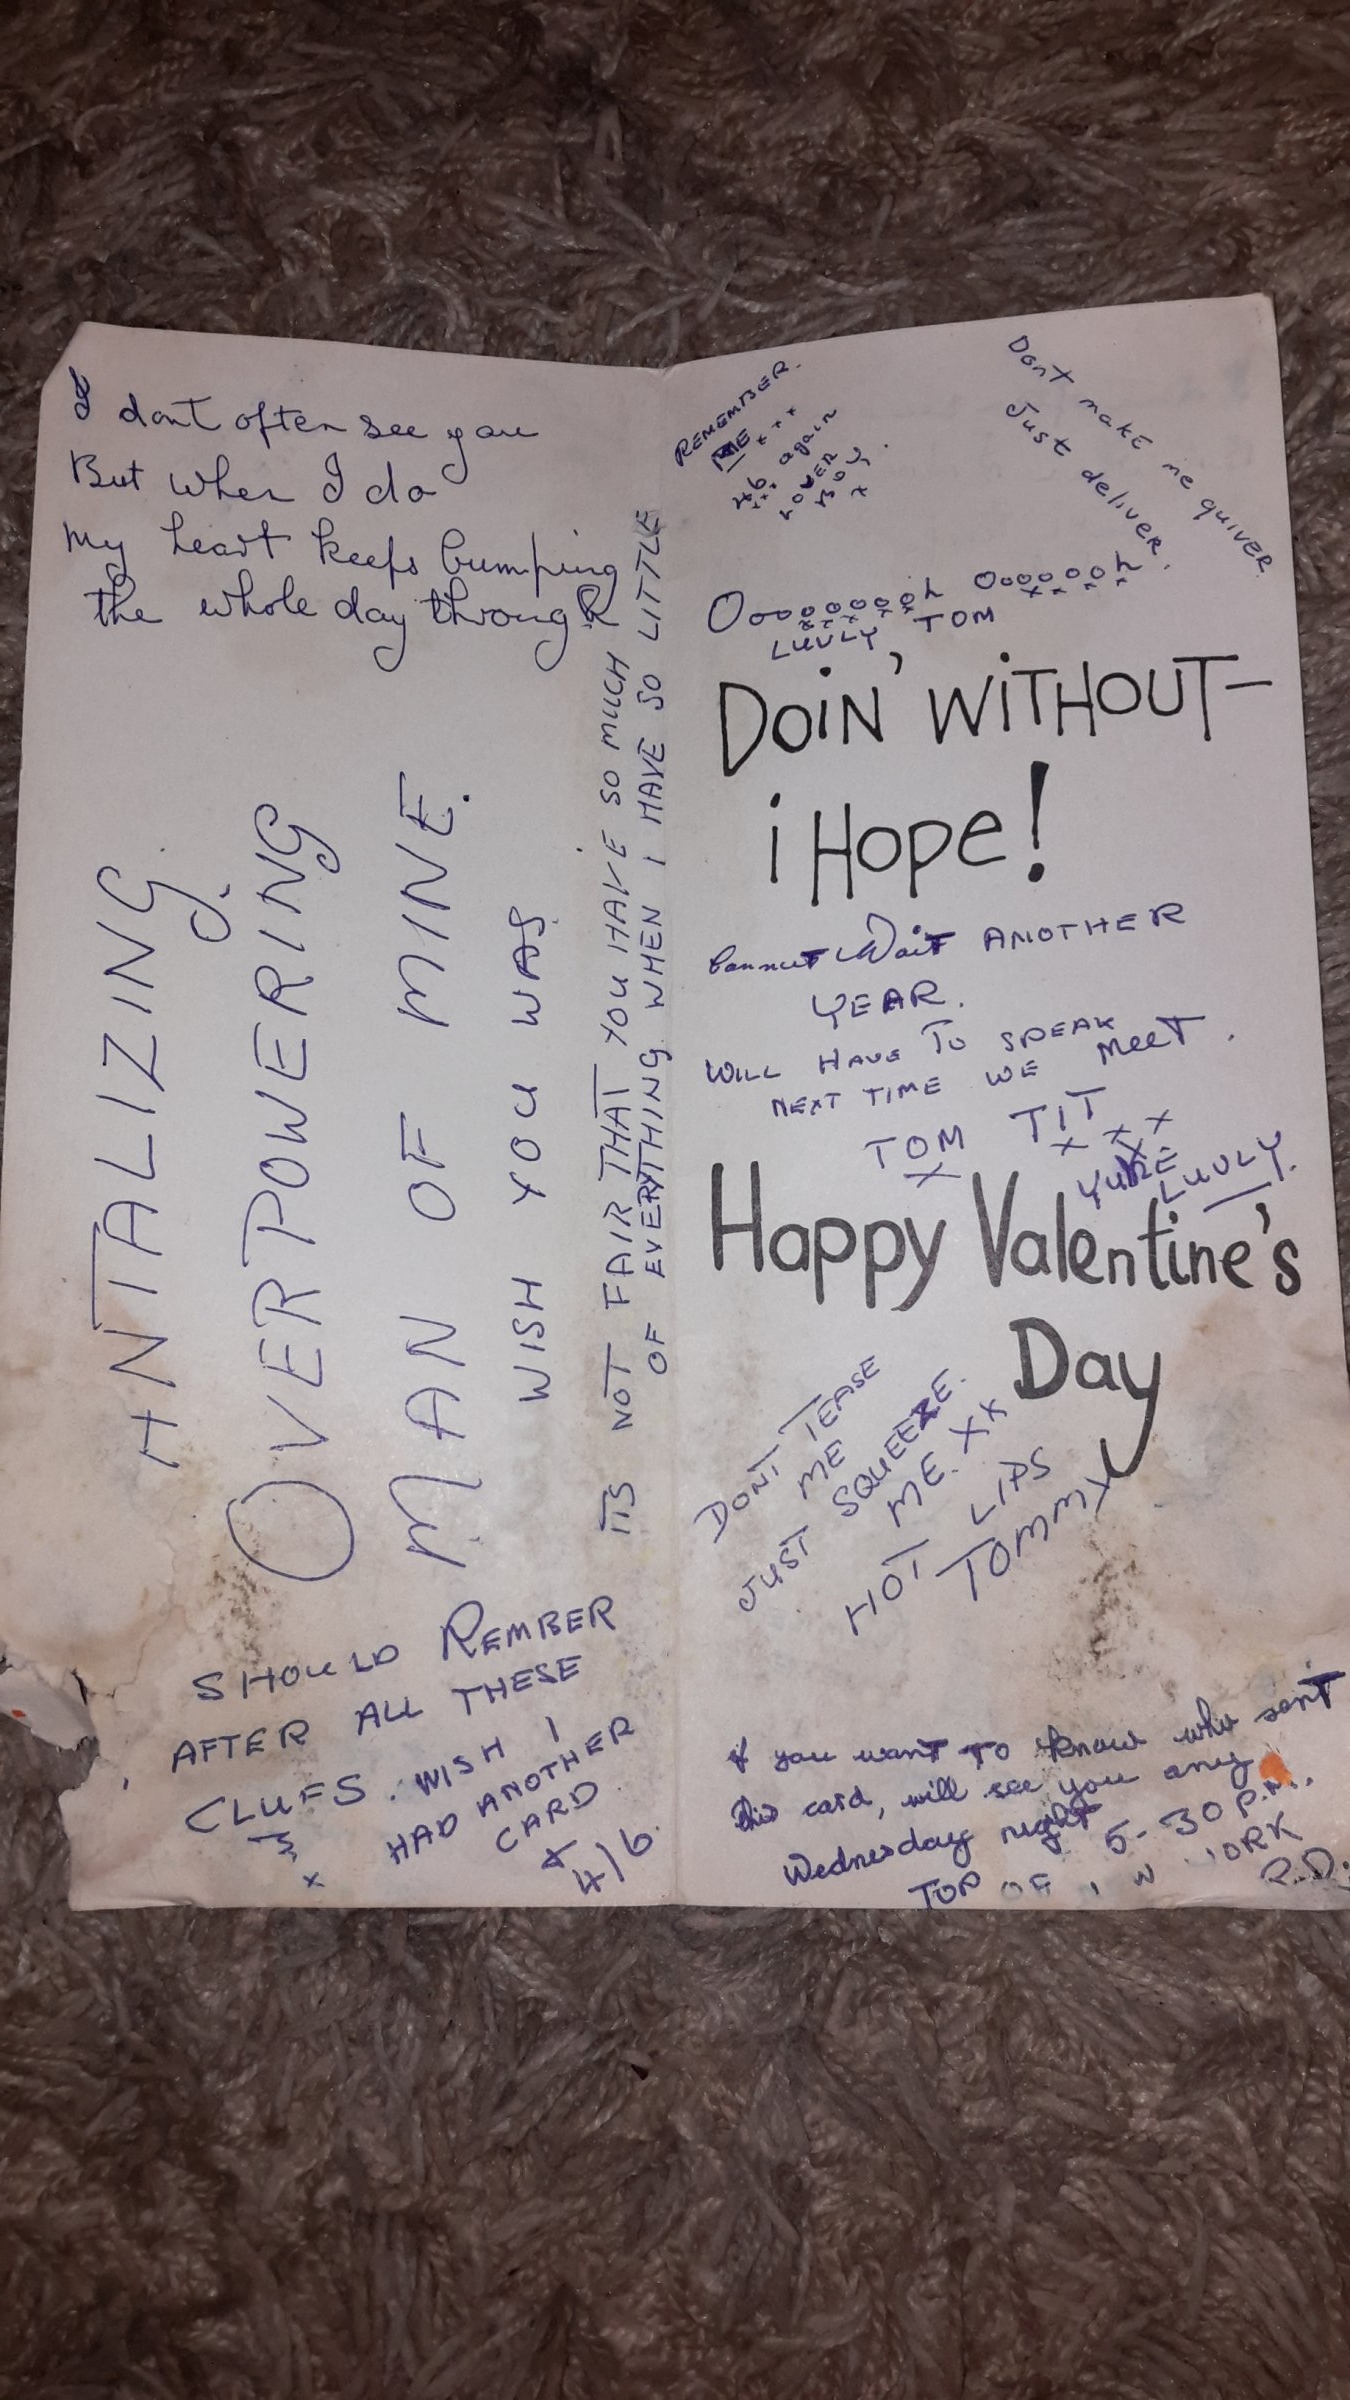 I dont often see you
But when I do
My heart keeps bumping
the whole day through
TANTALIZING.
OVERPOWERING
MAN OF MINE.
WISH YOU WAS.
ITS NOT FAIR THAT YOU HAVE SO MUCH
OF EVERYTHING WHEN I HAVE SO LITTLE
SHOULD REMBER
AFTER ALL THESE
CLUES. WISH I
HAD ANOTHER
CARD
4/6
REMEMBER.
ME xxx
46 again
LOVER
BOY.
x
Dont make me quiver
Just deliver.
Ooooooooh Oooooooh
xxxx xxxx
LUVLY TOM
DOIN' WITHOUT-
i HOPE!
Cannut Wait ANOTHER
YEAR.
WILL HAVE TO SPEAK
NEXT TIME WE MEET.
TOM TIT
x x x x
YURE
LUVLY.
Happy Valentine's
Day
DONT TEASE
ME
JUST SQUEEZE.
ME. XX
HOT LIPS
TOMMY
If you want TO know who sent
this card, will see you any
Wednesday night 5-30 P.M..
TOP OF RD.